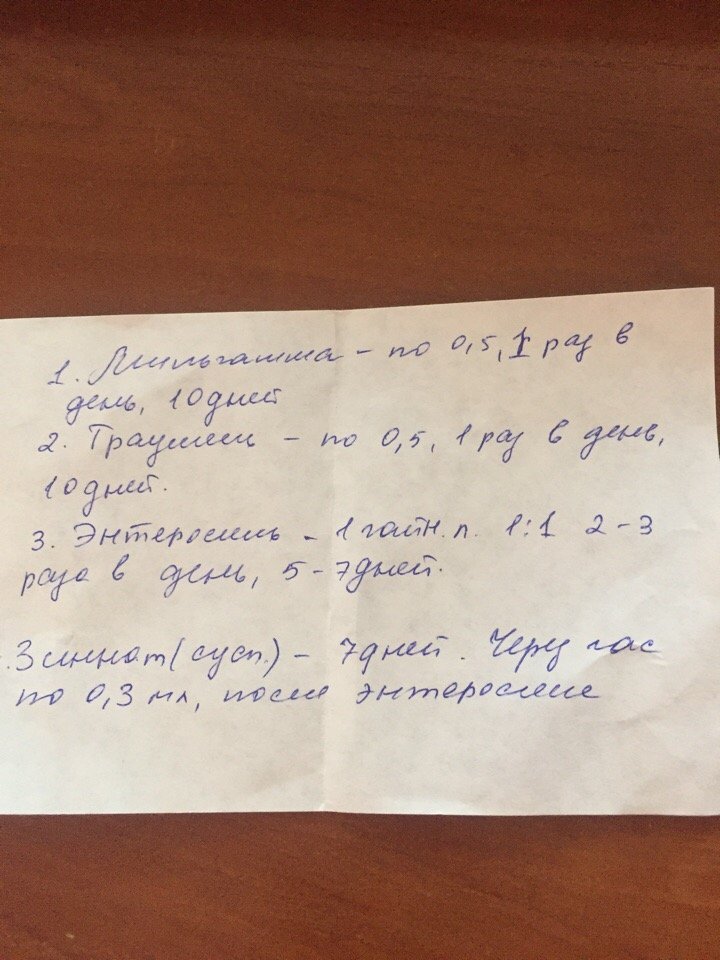 1. Мильгамма – по 0,5, 1 раз в
день, 10 дней
2. Траумель – по 0,5, 1 раз в день,
10 дней.
3. Энтеросгель – 1 чайн. л. 1:1 2-3
раза в день, 5-7 дней.
Зиннат (сусп.) – 7 дней. Через час
по 0,3 мл, после энтеросгеле